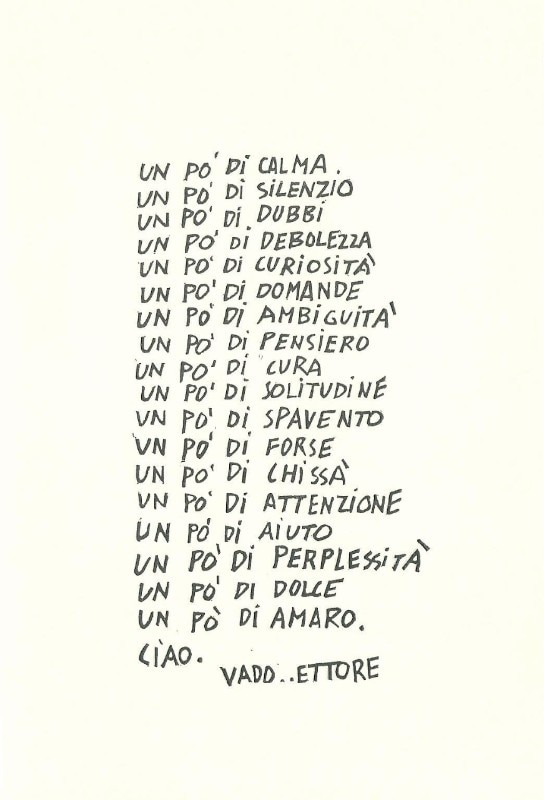 UN PO' DI CALMA.
UN PO' DI SILENZIO
UN PO' DI DUBBI
UN PO' DI DEBOLEZZA
UN PO' DI CURIOSITÀ
UN PO' DI DOMANDE
UN PO' DI AMBIGUITA'
UN PO' DI PENSIERO
UN PO' DI CURA
UN PO' DI SOLITUDINE
UN PO' DI SPAVENTO
UN PO' DI FORSE
UN PO' DI CHISSÀ
UN PO' DI ATTENZIONE
UN PO' DI AIUTO
UN PO' DI PERPLESSITÀ
UN PO' DI DOLCE
UN PÒ DI AMARO.
CIAO.
VADO..ETTORE